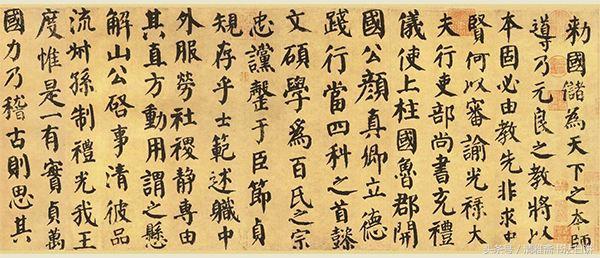 勅國儲為天下之本師
導乃元良之教將以
本固必由教先非求
賢何以審諭光祿大
夫行吏部尚書充禮
儀使上柱國魯郡開
國公顏真卿立德
踐行當四科之首懿
文碩學為百氏之宗
忠讜罄于臣節貞
規存乎士範述職中
外服勞社稷靜專由
其直方動用謂之懸
解山公啓事清彼品
流叔孫制禮光我王
度惟是一有實貞萬
國力乃稽古則思其
头条号 /